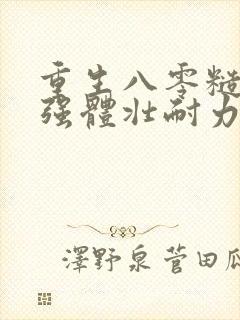 重生八零糙
强體壯耐力
澤野泉菅田